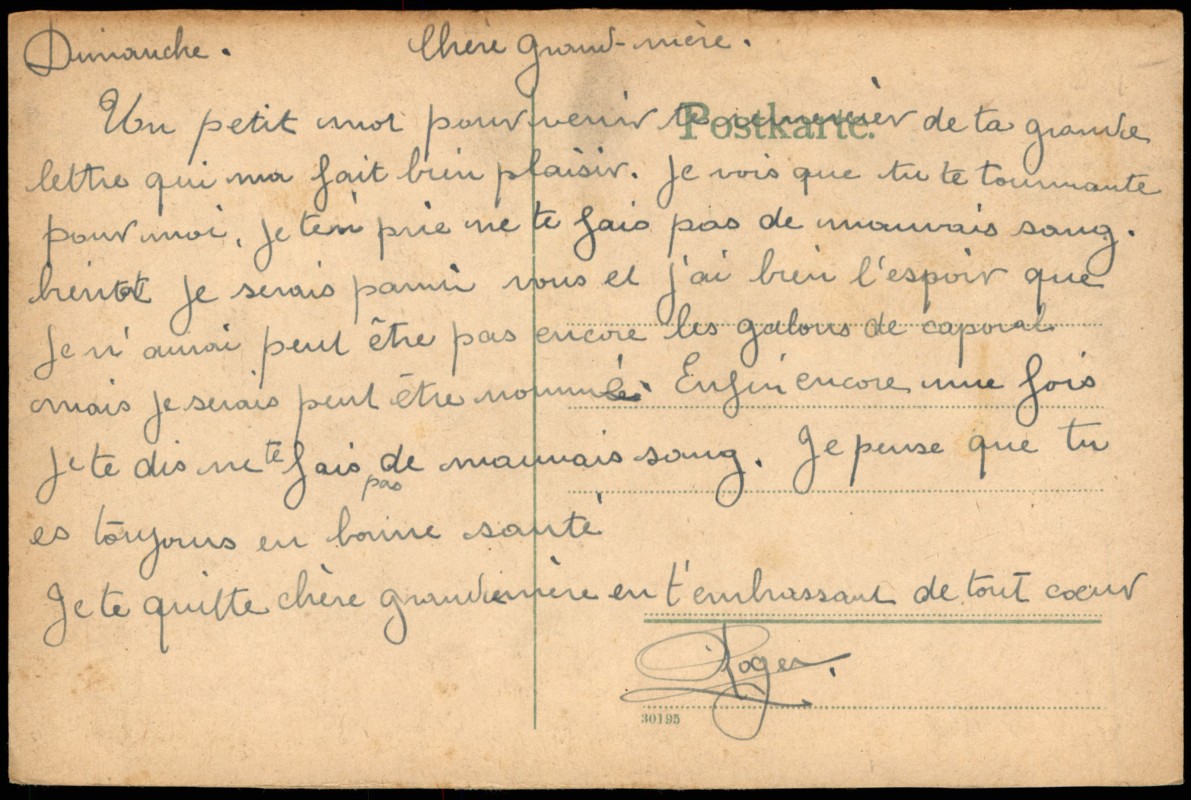 Dimanche. Chère grand-mère.
Postkarte.
Un petit mot pour venir te remercier de ta grande
lettre qui ma fait bien plaisir. Je vois que tu te tourmante
pour moi, je t'en prie ne te fais pas de mauvais sang.
bientot je serais parmi vous et j'ai bien l'espoir que
je n'aurai peut être pas encore les galons de caporal
mais je serais peut être nommé. Enfin encore une fois
je te dis ne te fais pas de mauvais sang. Je pense que tu
es toujours en bonne santé
Je te quitte chère grand mère en t'embrassant de tout cœur
Roger.
30195